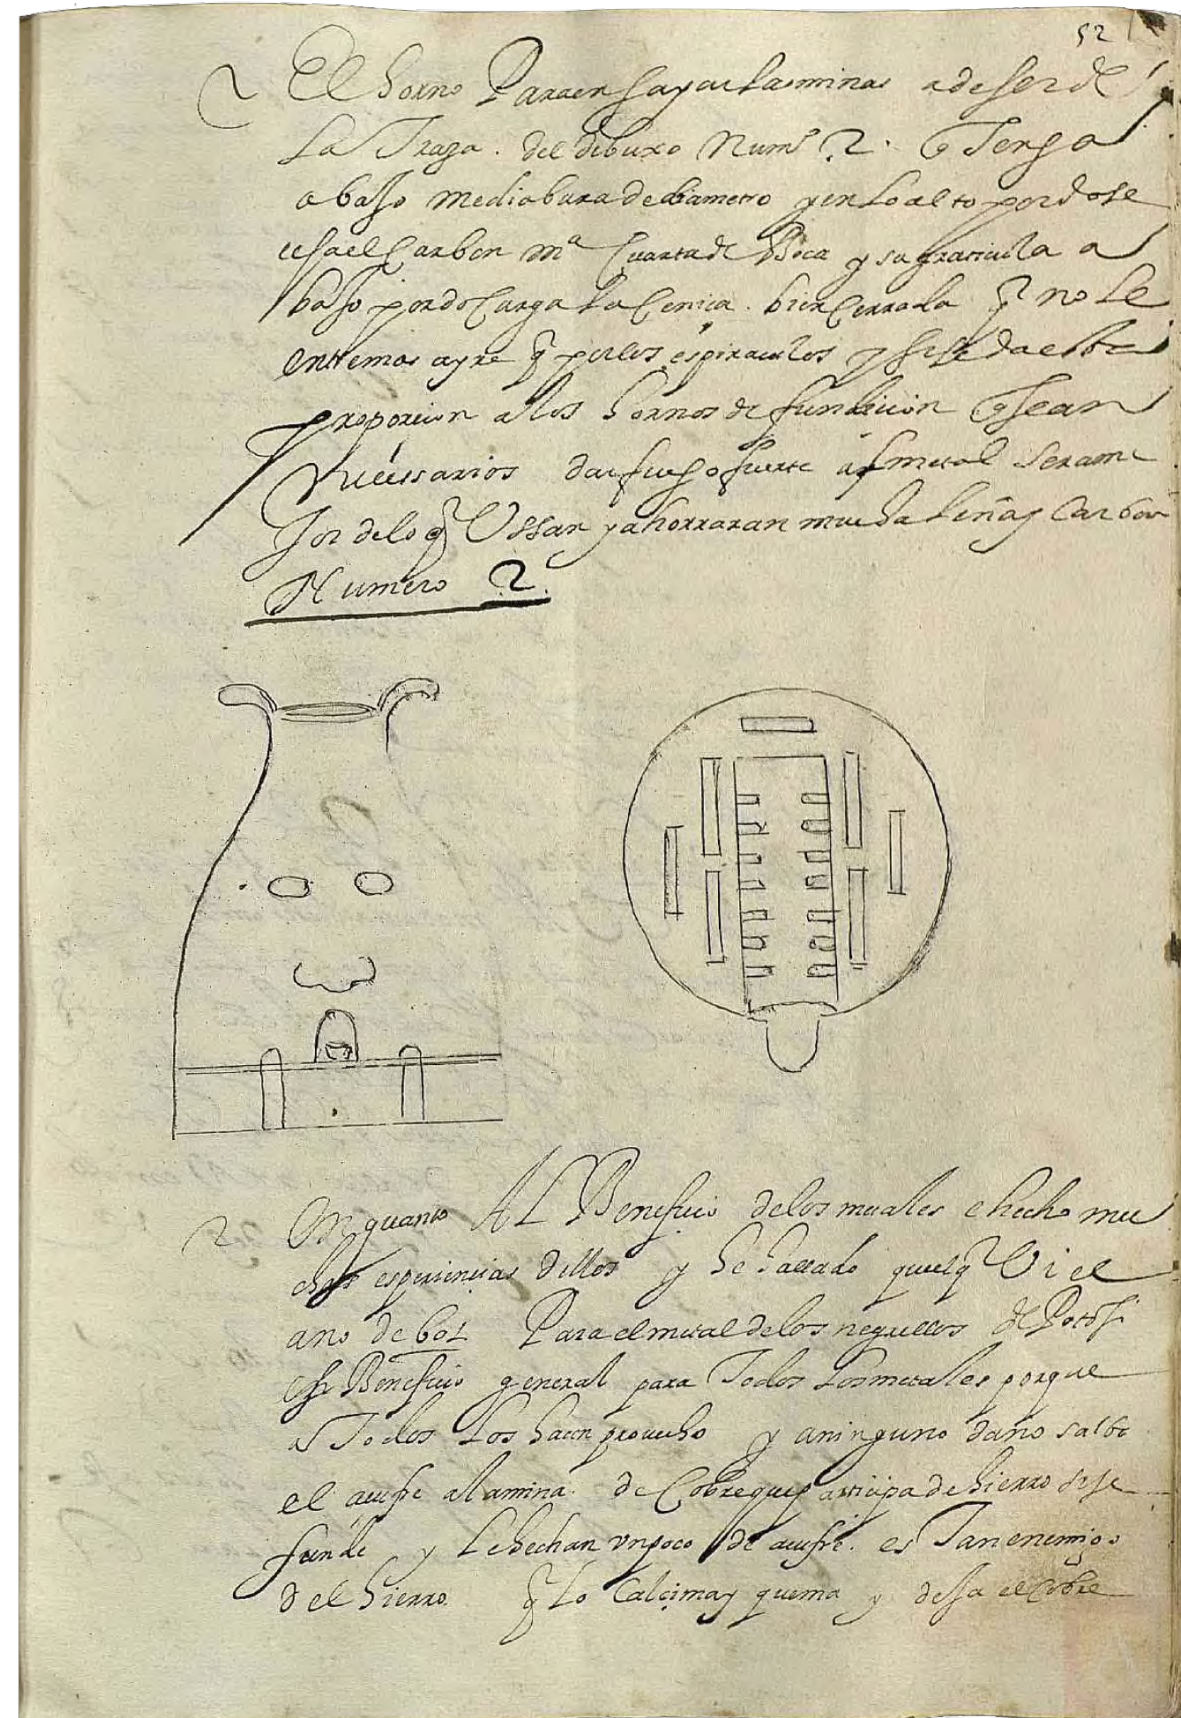 52
El horno Para ensayar las minas a de ser de
La Traza. del dibuxo Num.º 2. q Tenga
abaxo media bara de diametro y en lo alto por dose
echa el Carbon mª Cuarta de Boca y su graticula a
baxo por do Carga la Ceniça. bien Cerrada q no le
entre mas ayre q por los espiraculos y si se da esta
proporcion a los hornos de fundicion q sean
Necessarios dar fuego fuerte al metal seran me
jor de lo q Ussan y ahorraran mucha Leña y Carbon
Numero 2.
En quanto AL Beneficio de los metales e hecho mu
chas esperiençias dellos y he hallado quel q Di el
ano de 601 Para el metal de los negrillos de Potosi
es Beneficio general para Todos Los metales porque
a Todos Los hacen provecho y a ninguno daño salbo
el açufre a la mina. de Cobre que participa de hierro si se
funde y Le hechan un poco de açufre. es Tan enemigo
del hierro. q Lo Calçina y quema y dexa el Cobre